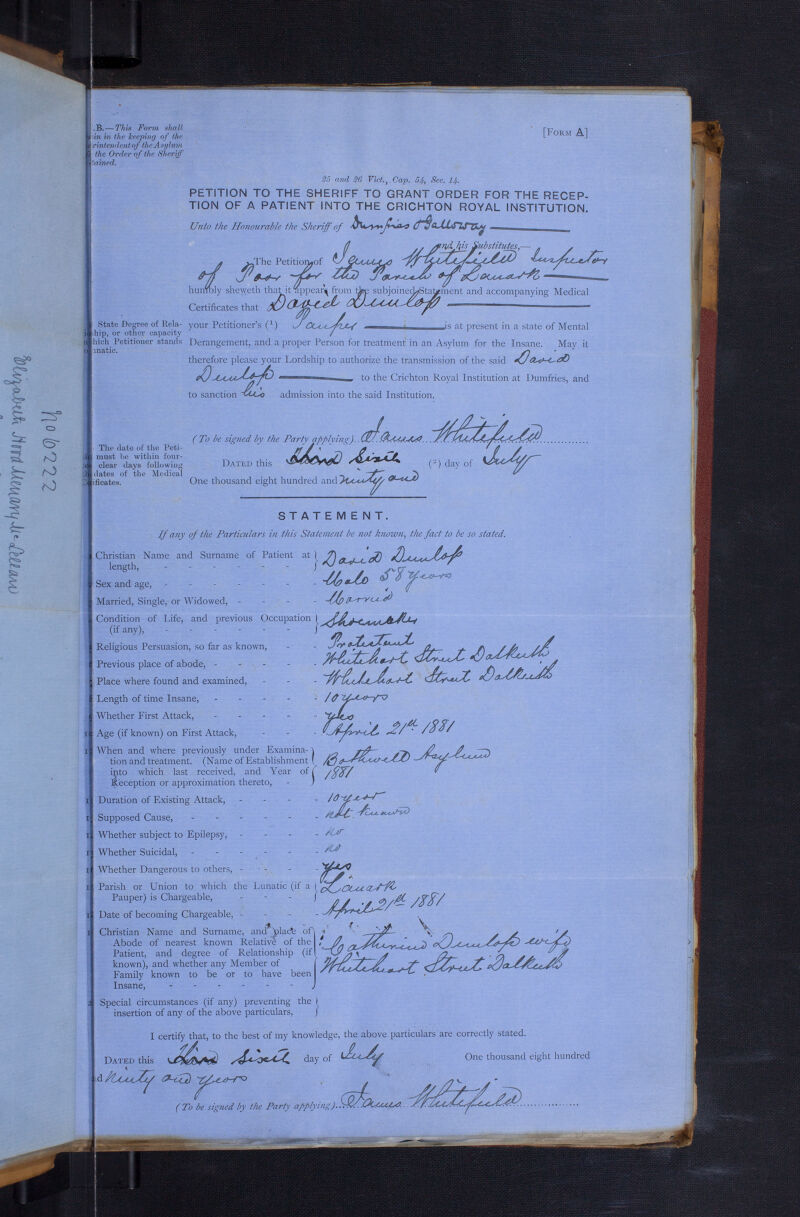 .B.—This Form shall
in in the keeping of the
rintendent of the Asylum
the Order of the Sheriff
tained.
[FORM A]
25 and 26 Vict., Cap. 54, Sec. 14.
PETITION TO THE SHERIFF TO GRANT ORDER FOR THE RECEP-
TION OF A PATIENT INTO THE CRICHTON ROYAL INSTITUTION.
Unto the Honourable the Sheriff of Dumfries & Galloway
and his Substitutes,—
The Petition of James Whitefield Inspector
of Poor for the Parish of Lanark
humbly sheweth that it appears from the subjoined Statement and accompanying Medical
Certificates that David Dunlop
State Degree of Rela-
ship, or other capacity
hich Petitioner stands
unatic.
your Petitioner's (¹) Pauper is at present in a state of Mental
Derangement, and a proper Person for treatment in an Asylum for the Insane. May it
therefore please your Lordship to authorize the transmission of the said David
Dunlop to the Crichton Royal Institution at Dumfries, and
to sanction his admission into the said Institution.
(To be signed by the Party applying) James Whitefield
The date of the Peti-
must be within four-
clear days following
dates of the Medical
ificates.
DATED this Third Sixth (²) day of July
One thousand eight hundred and ninty and
STATEMENT.
If any of the Particulars in this Statement be not known, the fact to be so stated.
Christian Name and Surname of Patient at length, David Dunlop
Sex and age, Male 58 years
Married, Single, or Widowed, Married
Condition of Life, and previous Occupation (if any), Shoemaker
Religious Persuasion, so far as known, Protestant
Previous place of abode, Whitehart Street Dalkeith
Place where found and examined, Whitehart Street Dalkeith
Length of time Insane, 10 years
Whether First Attack, yes
Age (if known) on First Attack, April 21st 1881
When and where previously under Examina-
tion and treatment. (Name of Establishment
into which last received, and Year of
Reception or approximation thereto,
Bothwell Asylum
1881
Duration of Existing Attack, 10 year
Supposed Cause, not known
Whether subject to Epilepsy, no
Whether Suicidal, no
Whether Dangerous to others, yes
Parish or Union to which the Lunatic (if a
Pauper) is Chargeable, Lanark
Date of becoming Chargeable, April 21st 1881
Christian Name and Surname, and place of
Abode of nearest known Relative of the
Patient, and degree of Relationship (if
known), and whether any Member of
Family known to be or to have been
Insane,
Catherine Dunlop wife
Whitehart Street Dalkeith
Special circumstances (if any) preventing the
insertion of any of the above particulars,
I certify that, to the best of my knowledge, the above particulars are correctly stated.
DATED this Third Sixth day of July One thousand eight hundred
d ninty and years
(To be signed by the Party applying) James Whitefield
no 6222
Elizabeth Hood